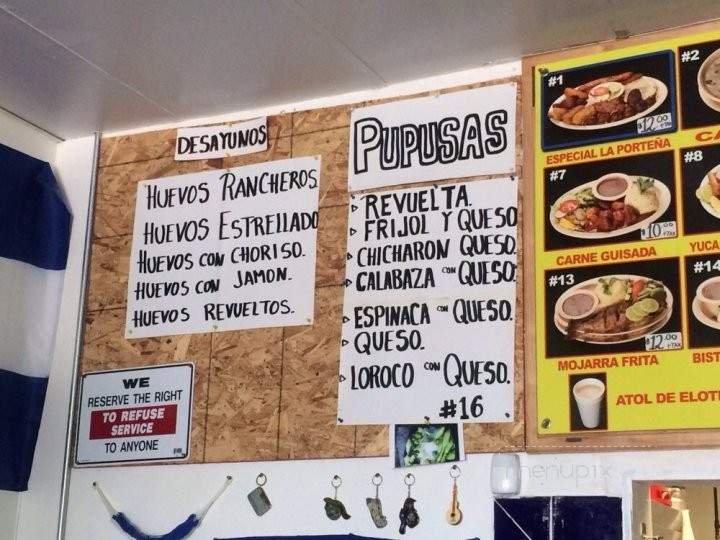 DESAYUNOS
HUEVOS RANCHEROS.
HUEVOS ESTRELLADO
HUEVOS CON CHORISO.
HUEVOS CON JAMON.
HUEVOS REVUELTOS.
WE
RESERVE THE RIGHT
TO REFUSE
SERVICE
TO ANYONE
PUPUSAS
REVUELTA.
FRIJOL Y QUESO
CHICHARON QUESO.
CALABAZA CON QUESO
ESPINACA CON QUESO.
QUESO.
LOROCO CON QUESO.
#16
#1
12.00 +TAX
ESPECIAL LA PORTEÑA
#2
CA
#7
10.00 +TAX
CARNE GUISADA
#8
YUCA
#13
12.00 +TAX
MOJARRA FRITA
#14
BIST
ATOL DE ELOT
menupix